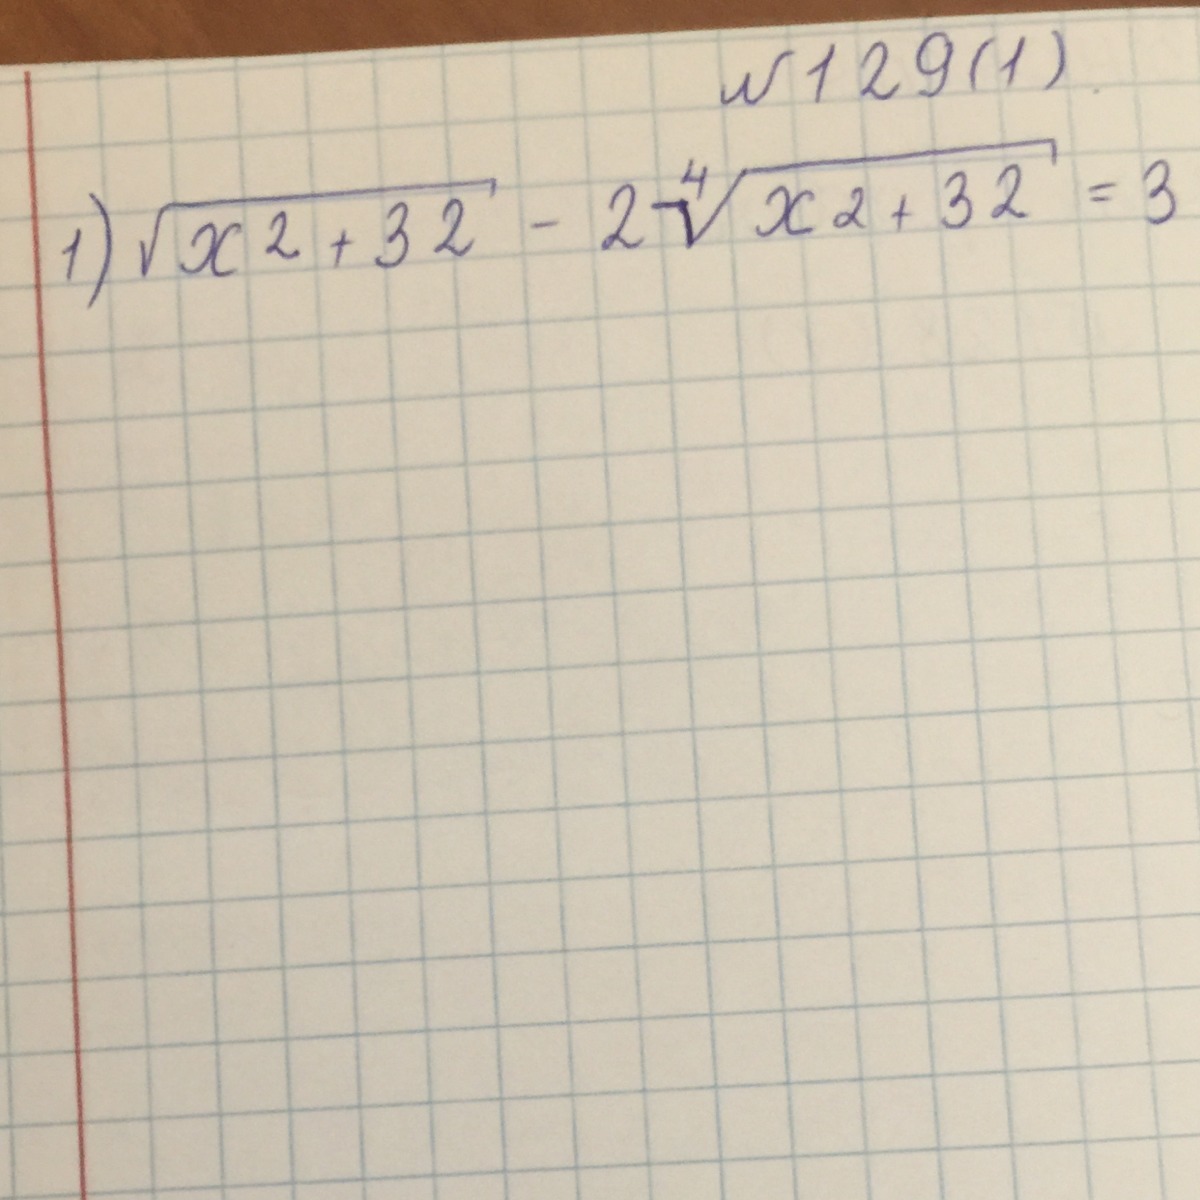 №129(1)
1) √x2+32 - 2 ⁴√x2+32 = 3